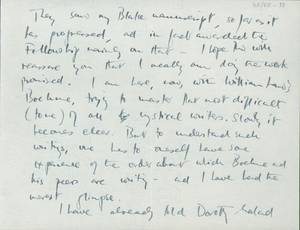 They saw my Blake manuscript, so far as it
has progressed, and in fact awarded the
Fellowship mainly on that – I hope this will
reassure you that I really am doing the work
promised. I am here, now, with William Law's
Boehme, trying to master that most difficult
(to me) of all mystical writers. Slowly it
becomes clear. But to understand such
writings, one has to oneself have some
experience of the order about which Boehme and
his peers are writing – and I have had the
merest glimpse.
I have already told Dorothy